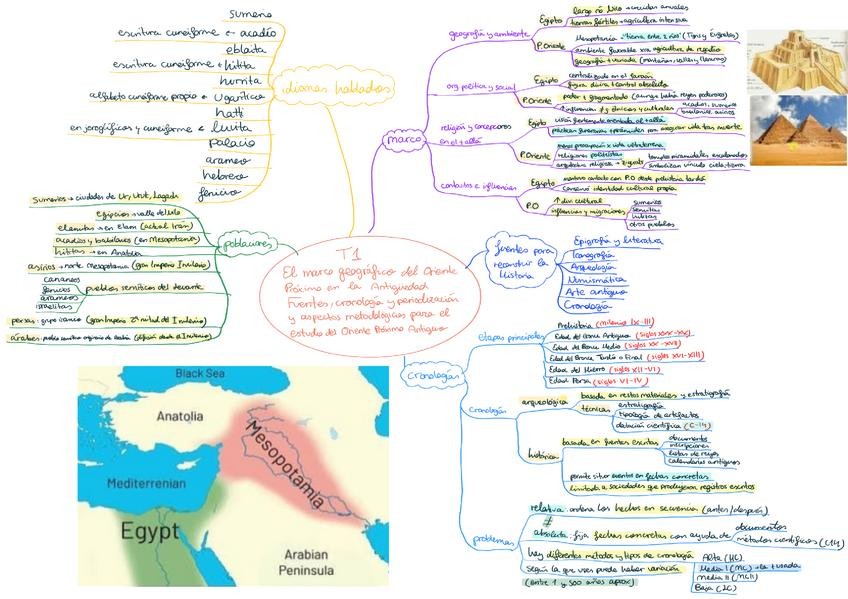 T1
El marco geográfico del Oriente
Próximo en la Antigüedad
Fuentes, cronología y periodización
y aspectos metodológicos para el
estudio del Oriente Próximo Antiguo
idiomas hablados
sumerio
escritura cuneiforme ← acadio
eblaita
escritura cuneiforme ← hitita
hurrita
alfabeto cuneiforme propio ← ugarítico
hatti
en jeroglíficos y cuneiforme ← luvita
palacio
arameo
hebreo
fenicio
poblaciones
sumerios → ciudades de Ur, Uruk, Lagash
egipcios → valle del Nilo
elamitas → en Elam (actual Irán)
acadios y babilonios (en Mesopotamia)
hititas → en Anatolia
asirios → norte mesopotamia (gran Imperio I milenio)
pueblos semíticos del levante
cananeos
fenicios
arameos
israelitas
persas: grupo iranio (gran Imperio 2ª mitad del I milenio)
árabes:
marco
geografía y ambiente
Egipto
largo río Nilo → crecidas anuales
tierras fértiles → agricultura intensiva
P. Oriente
Mesopotamia "tierra entre 2 ríos" (Tigris y Éufrates)
ambiente favorable xra agricultura de regadío
geografía + variada (montañas, valles y llanuras)
org. política y social
Egipto
centralizada en el faraón
figura divina + control absoluto
P. Oriente
poder + fragmentado (aunque había reyes poderosos)
↑ influencias y ≠ étnicas y culturales
acadios, sumerios
babilonios, asirios
religión y concepciones
en el + allá
Egipto
visión fuertemente orientada al + allá
P. Oriente
menos preocupación x vida ultraterrena
religiones politeístas
arquitectura religiosa → zigurats
templos piramidales escalonados
simbolizan vínculo cielo-tierra
contactos e influencias
Egipto
mantuvo contacto con P.O desde prehistoria tardía
conservó identidad cultural propia
P.O
↑ div. cultural
influencias y migraciones
sumerios
semitas
hititas
otros pueblos
fuentes para
reconstruir la
Historia
Epigrafía y literatura
Iconografía
Arqueología
Numismática
Arte antiguo
Cronología
Cronologías
etapas principales
Prehistoria (milenio IX-III)
Edad del Bronce Antiguo (siglos XXX-XXV)
Edad del Bronce Medio (siglos XX-XVII)
Edad del Bronce Tardío o Final (siglos XVI-XIII)
Edad del Hierro (siglos XII-VI)
Edad Persa (siglos VI-IV)
Cronología
arqueológica
basada en restos materiales y estratigrafía
técnicas
estratigrafía
tipología de artefactos
datación científica (C-14)
histórica
basada en fuentes escritas
documentos
inscripciones
listas de reyes
calendarios antiguos
permite situar eventos en fechas concretas
limitada a sociedades que produjeron registros escritos
problemas
relativa: ordena los hechos en secuencia (antes/después)
≠
absoluta: fija fechas concretas con ayuda de
documentos
métodos científicos (C14)
hay diferentes métodos y tipos de cronología
según la que uses puede haber variación
(entre 1 y 500 años aprox)
Alta (HC)
Media I (MC) → la + usada
Media II (MCII)
Baja (LC)
Black Sea
Anatolia
Mesopotamia
Mediterrenian
Egypt
Arabian
Peninsula